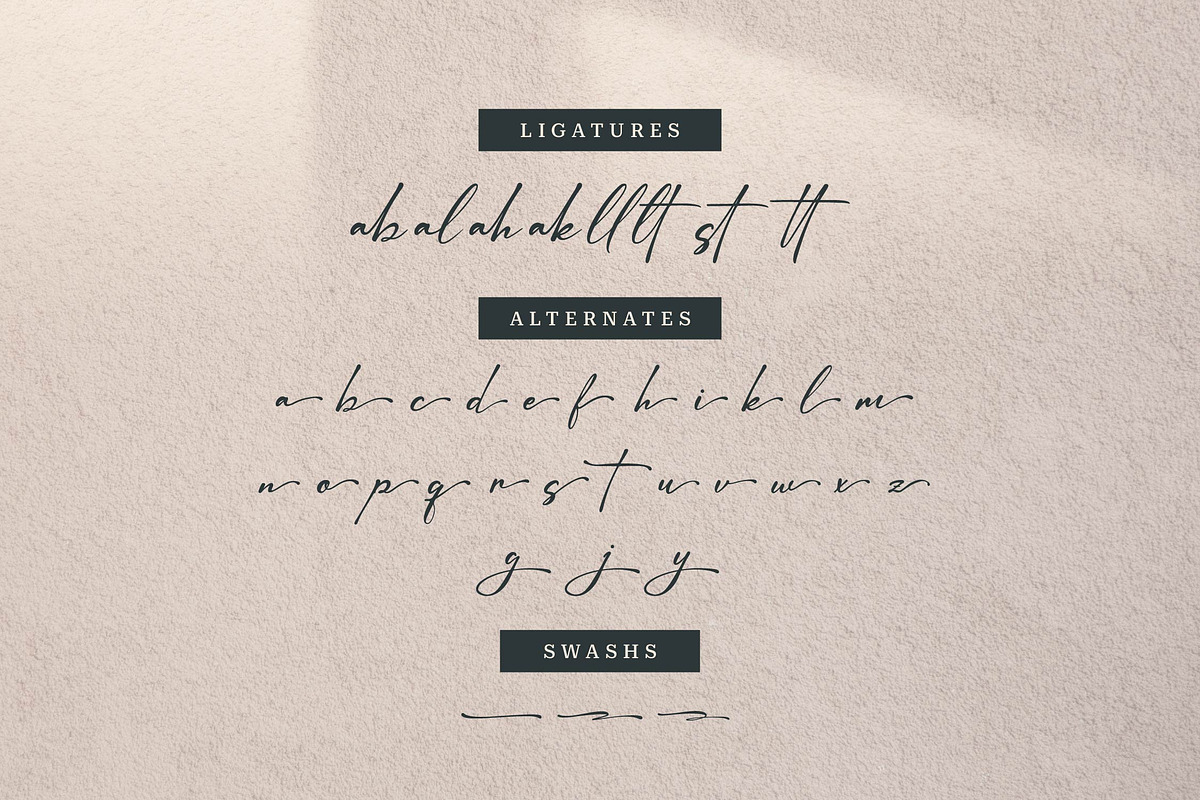 LIGATURES
ab al ah ak ll lt st tt
ALTERNATES
a b c d e f h i k l m
n o p q r s t u v w x z
g j y
SWASHS